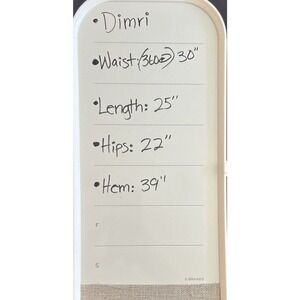 • Dimri
• Waist: (360°) 30"
• Length: 25"
• Hips: 22"
• Hem: 39"
F
S